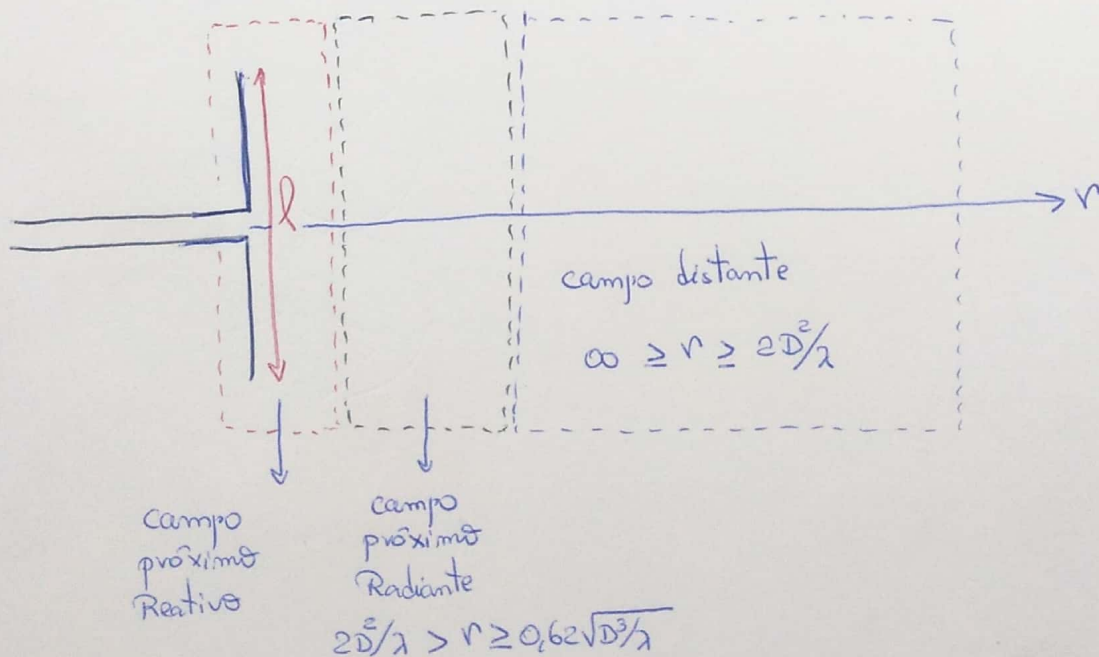 l
r
campo distante
∞ ≥ r ≥ 2D²/λ
campo
próximo
Reativo
campo
próximo
Radiante
2D²/λ > r ≥ 0,62√D³/λ